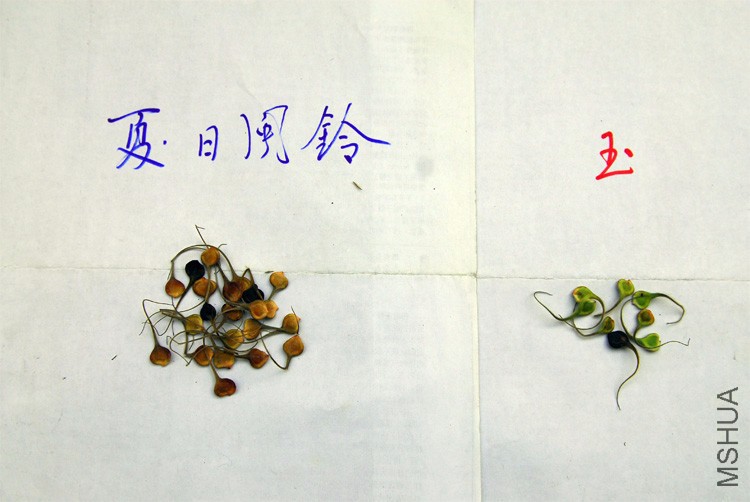 夏日風鈴
玉
MSHUA